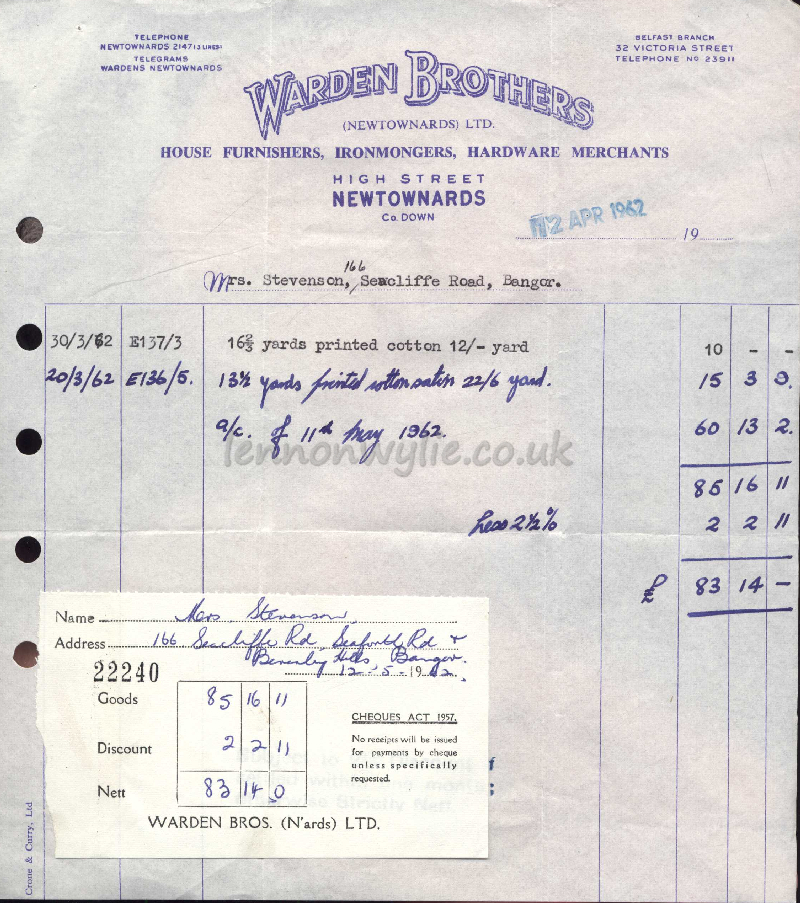 TELEPHONE
NEWTOWNARDS 2147 (3 LINES)
TELEGRAMS
WARDENS NEWTOWNARDS
BELFAST BRANCH
32 VICTORIA STREET
TELEPHONE Nº 23911
WARDEN BROTHERS
(NEWTOWNARDS) LTD.
HOUSE FURNISHERS, IRONMONGERS, HARDWARE MERCHANTS
HIGH STREET
NEWTOWNARDS
Co. DOWN
12 APR 1962
19
166
Mrs. Stevenson, Seacliffe Road, Bangor.
30/3/62 E137/3 16⅔ yards printed cotton 12/- yard 10 - -
20/3/62 E136/5. 13½ yards printed cotton satin 22/6 yard. 15 3 9.
a/c. of 11th May 1962. 60 13 2.
lennonwylie.co.uk
85 16 11
Less 2½% 2 2 11
£ 83 14 -
Name Mrs Stevenson
Address 166 Seacliffe Rd, Seaforth Rd +
Beverley Hills, Bangor.
22240
12-5-1962.
Goods 85 16 11
Discount 2 2 11
Nett 83 14 0
CHEQUES ACT 1957.
No receipts will be issued
for payments by cheque
unless specifically
requested.
WARDEN BROS. (N'ards) LTD.
Strictly Nett
Crone & Curry, Ltd